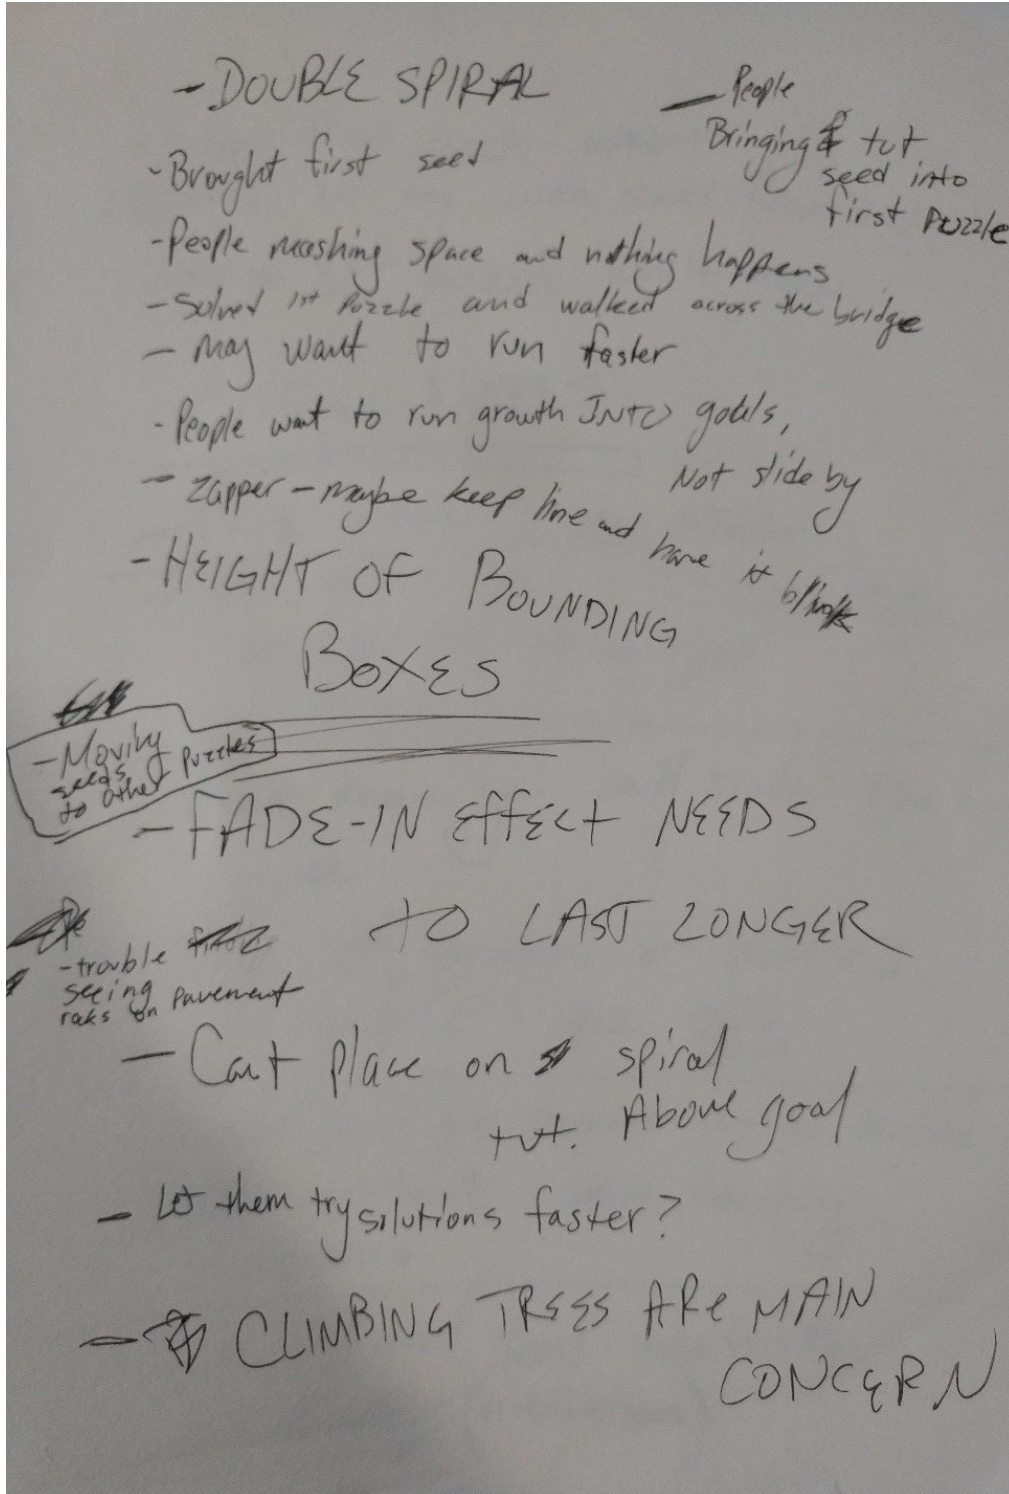 - DOUBLE SPIRAL
- People
Bringing tut
seed into
first Puzzle
- Brought first seed
- People mashing space and nothing happens
- Solved 1st Puzzle and walked across the bridge
- May want to run faster
- People want to run growth INTO goals,
Not slide by
- Zapper - maybe keep line and have it blink
- HEIGHT OF BOUNDING
BOXES
- Moving
seeds
to other Puzzles
- FADE-IN EffEct NEEDS
TO LAST LONGER
- trouble
seeing
on Pavement
- Cant place on spiral
tut. Above goal
- Let them try solutions faster?
- CLIMBING TREES ARE MAIN
CONCERN